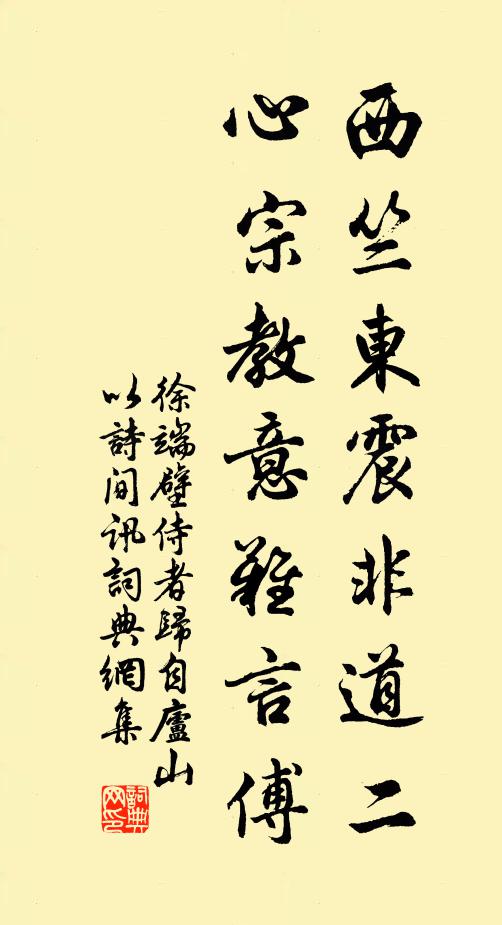 西竺東震非道二
心宗教意難言傅
徐端璧侍者歸自廬山
以詩间讯詞典網集
詞典网印